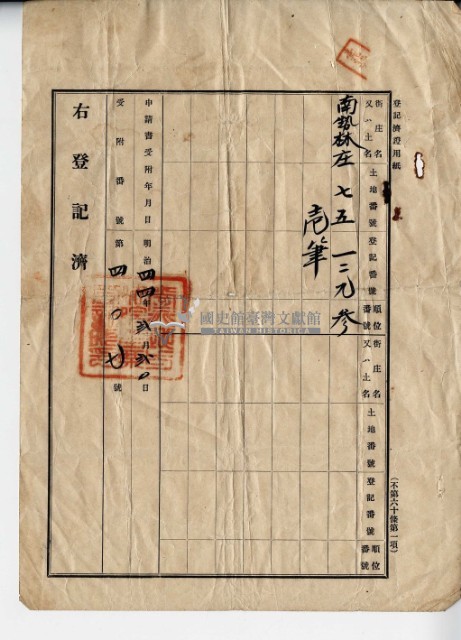 登記濟證用紙
(不第六十條第一項)
街庄名又ハ土名 土地番號 登記番號 順位番號
街庄名又ハ土名 土地番號 登記番號 順位番號
南勢林庄 七五 參
壱筆
申請書受附年月日 明治四四年貳月貳〇日
受附番號第四〇七號
右登記濟
國史館臺灣文獻館
TAIWAN HISTORICA